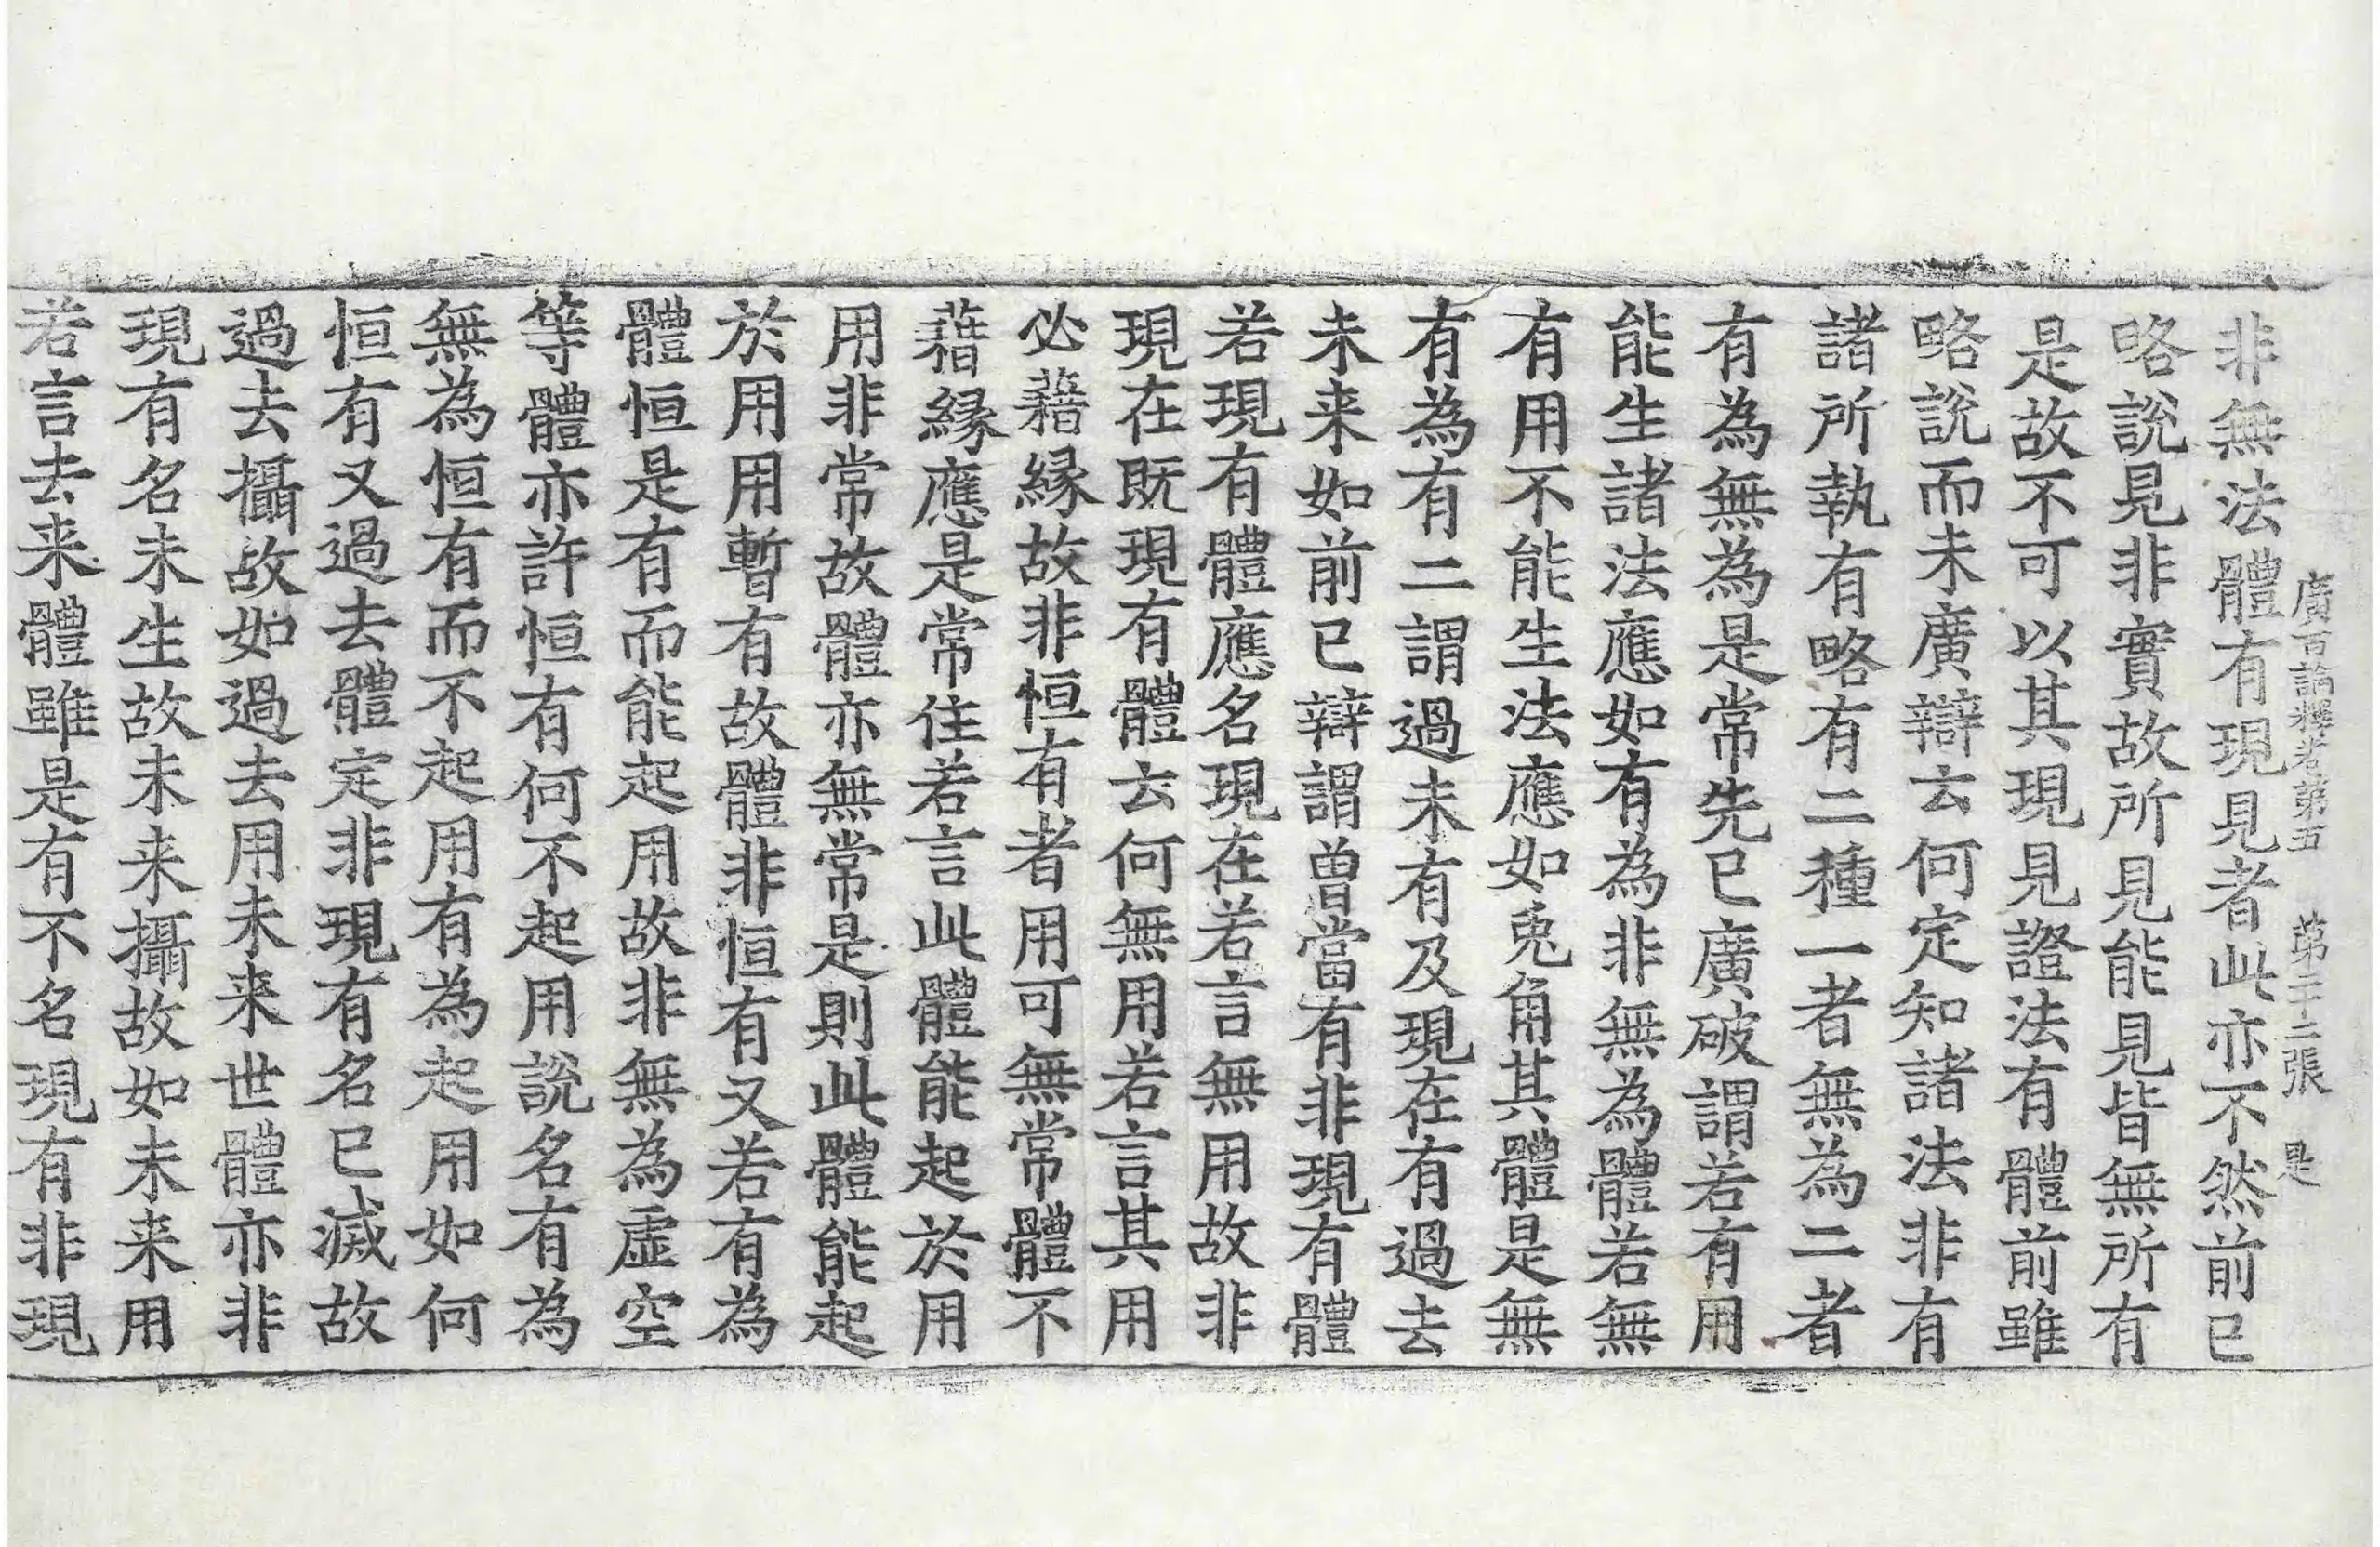 廣百論釋卷第五　第二十二張　是
非無法體有現見者此亦不然前已
略說見非實故所見能見皆無所有
是故不可以其現見證法有體前雖
略說而未廣辯云何定知諸法非有
諸所執有略有二種一者無為二者
有為無為是常先已廣破謂若有用
能生諸法應如有為非無為體若無
有用不能生法應如兎角其體是無
有為有二謂過未有及現在有過去
未来如前已辯謂曾當有非現有體
若現有體應名現在若言無用故非
現在既現有體云何無用若言其用
必藉縁故非恒有者用可無常體不
藉縁應是常住若言此體能起於用
用非常故體亦無常是則此體能起
於用用暫有故體非恒有又若有為
體恒是有而能起用故非無為虛空
等體亦許恒有何不起用說名有為
無為恒有而不起用有為起用如何
恒有又過去體定非現有名已滅故
過去攝故如過去用未来世體亦非
現有名未生故未来攝故如未来用
若言去来體雖是有不名現有非現